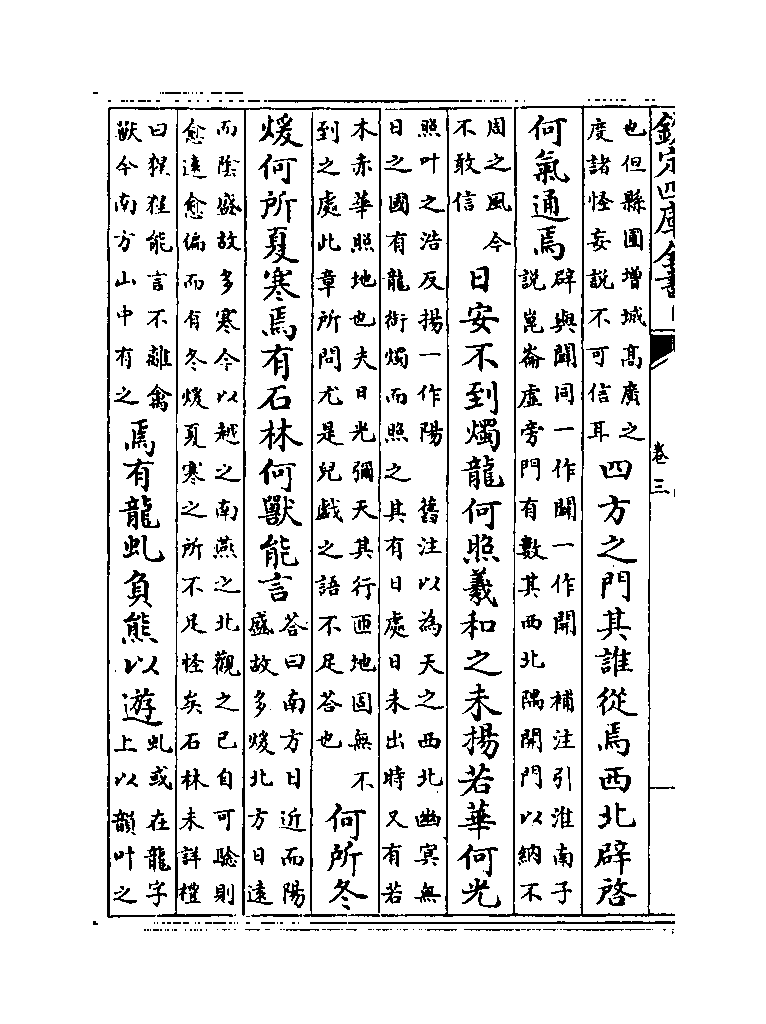 欽定四庫全書
卷三
也但縣圃增城高廣之
度諸怪妄説不可信耳
四方之門其誰從焉西北辟啓
何氣通焉
辟與闢同一作闢一作開 補注引淮南子
説崑崙虛旁門有數其西北隅開門以納不
周之風今
不敢信
日安不到燭龍何照羲和之未揚若華何光
照叶之浩反揚一作陽 舊注以為天之西北幽冥無
日之國有龍銜燭而照之其有日處日未出時又有若
木赤華照地也夫日光彌天其行匝地固無不
到之處此章所問尤是兒戲之語不足答也
何所冬
煖何所夏寒焉有石林何獸能言
答曰南方日近而陽
盛故多煖北方日遠
而陰盛故多寒今以越之南燕之北觀之已自可騐則
愈遠愈偏而有冬煖夏寒之所不足怪矣石林未詳禮
曰猩猩能言不離禽
獸今南方山中有之
焉有龍虬負熊以遊
虬或在龍字
上以韻叶之